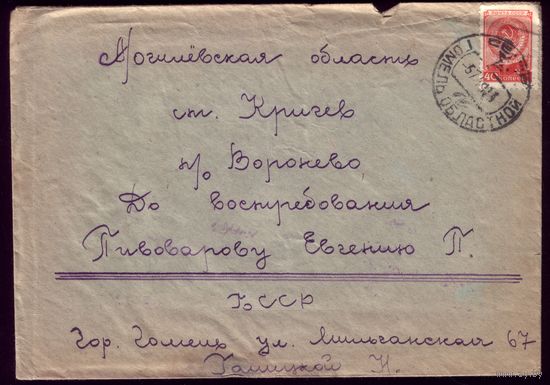 ПОЧТА СССР
40 КОПЕЕК
ГОМЕЛЬ ОБЛАСТНОЙ
Могилёвская область
ст. Кричев
п/о Воронево
До востребования
Пивоварову Евгению П.
БССР
Гор. Гомель ул. 67
Н.